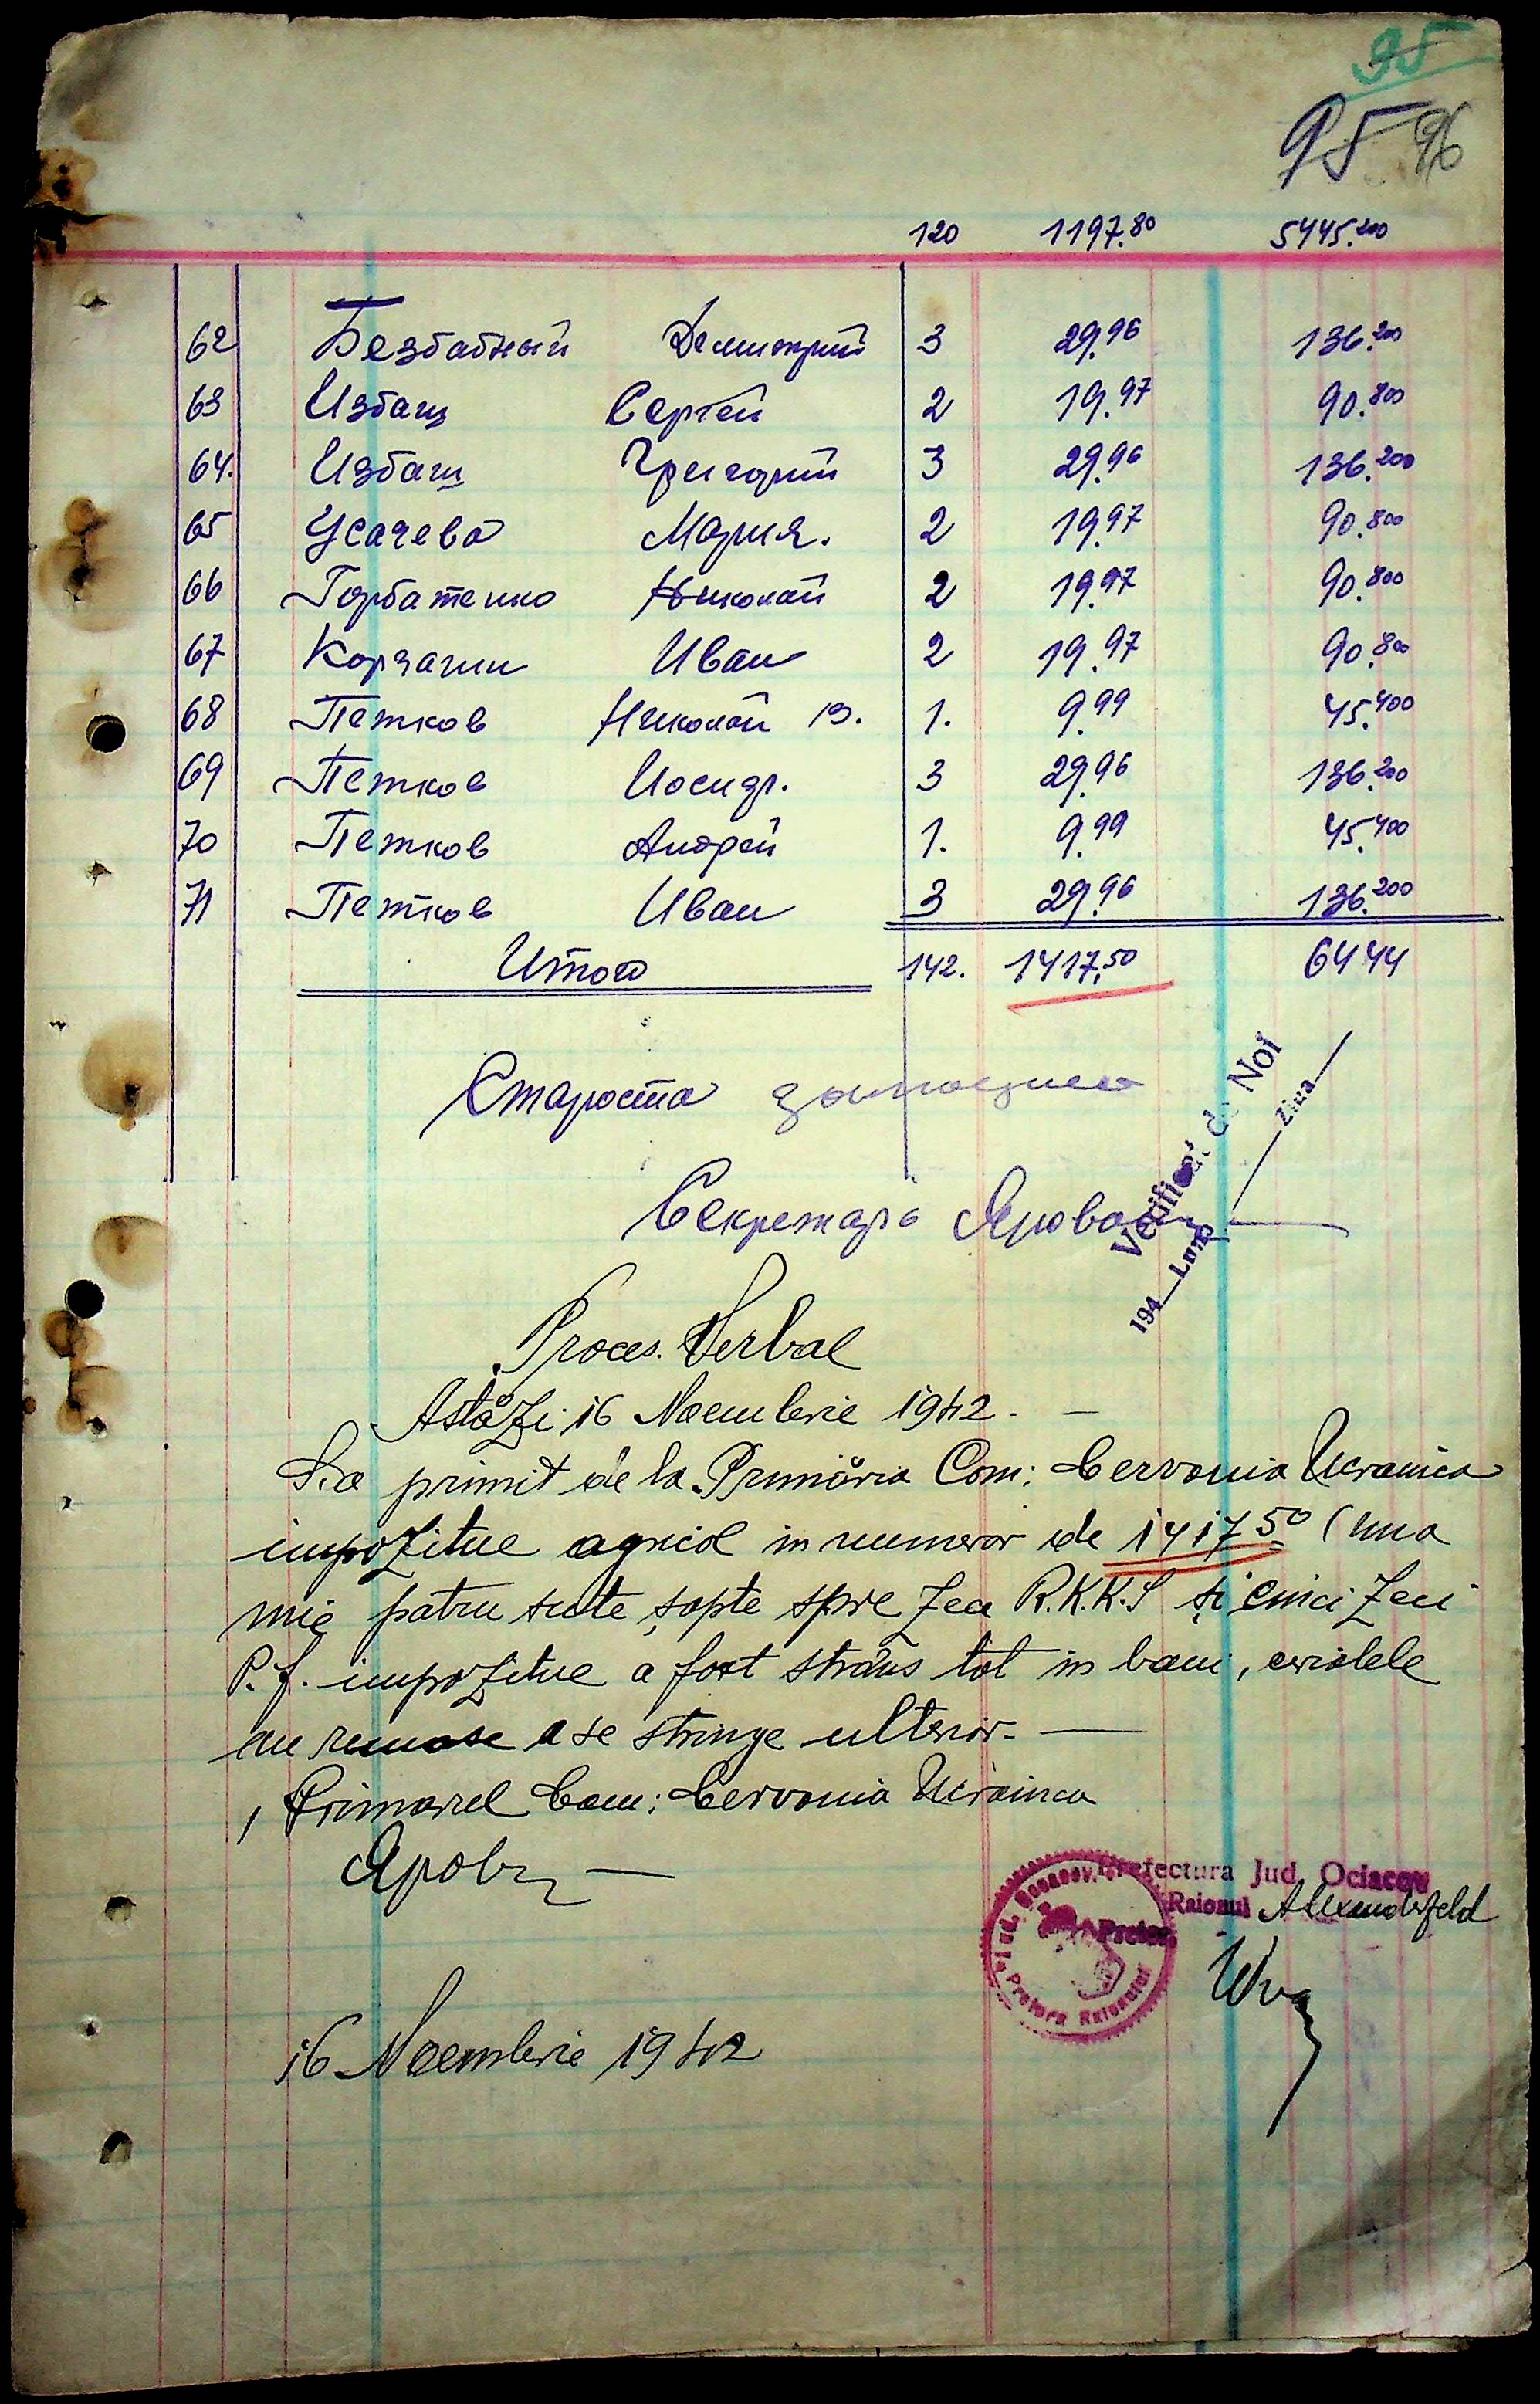 95
95 96
120 1197.80 5445.200
62 Безбабный Демитрий 3 29.96 136.200
63 Избащ Сергей 2 19.97 90.800
64. Избаш Григорий 3 29.96 136.200
65 Усачева Мария. 2 19.97 90.800
66 Горбатенко Николай 2 19.97 90.800
67 Корчагин Иван 2 19.97 90.800
68 Петков Николай В. 1. 9.99 45.400
69 Петков Иосиф. 3 29.96 136.200
70 Петков Андрей 1. 9.99 45.400
71 Петков Иван 3 29.96 136.200
Итого 142. 1417.50 6444
Староста
Verificat de Noi
194__ Luna __ Ziua__
Секретарь Яровой
Proces. Verbal
Astăzi 16 Noembrie 1942. —
S.a primit de la Primăria Com: Cervonia Ucrainca
impozitul agricol in numerar de 1417 50 (una
mie patru sute șapte spre zece R.K.K.S și cinci zeci
P.f. impozitul a fost strâns tot in bani, cerialele
au remase a se stringe ulterior. —
Primarul Com: Cervonia Ucrainca
Яров —
Prefectura Jud. Ociacov
Raionul Alexanderfeld
Pretor
Pretura Raionului
16 Noembrie 1942